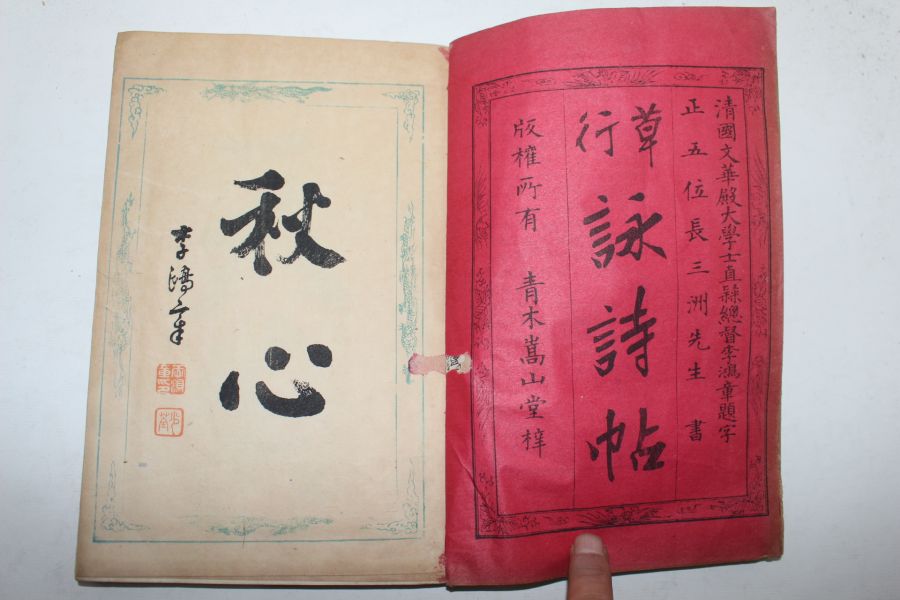 清國文華殿大學士直隷總督李鴻章題字
正五位長三洲先生書
草行
詠詩帖
版權所有 青木嵩山堂梓
秋心
李鴻章